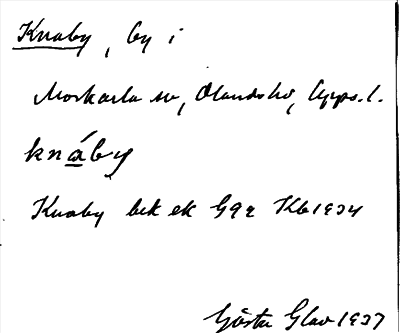 Knaby, by i
Morkarla sn, Olands hd, Upps. l.
knáby
Knaby bek ek G92 Kb 1934
Gösta Glav 1937